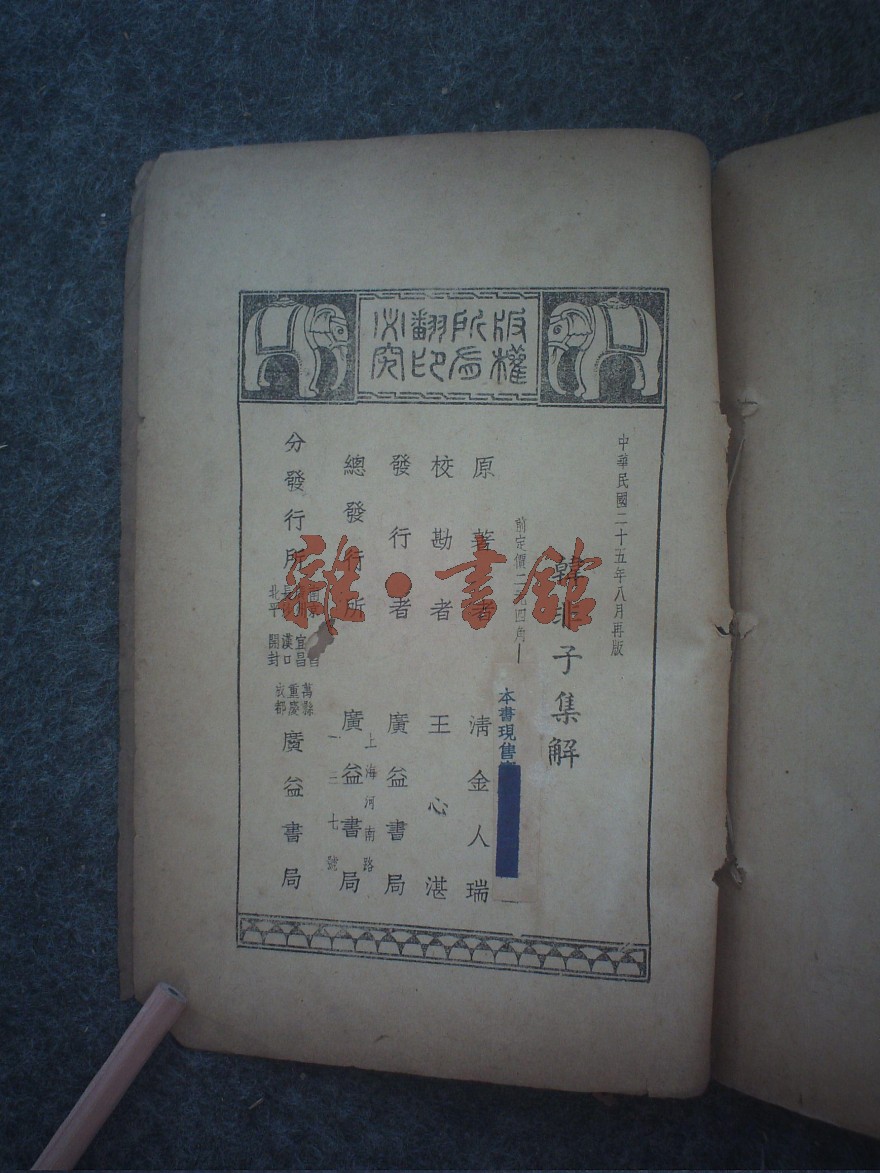 版權所有翻印必究
中華民國二十五年八月再版
韓非子集解
定價
四角
本書現售
原著者 清金人瑞
校勘者 王心湛
發行者 廣益書局
總發行所 廣益書局
上海河南路
一三七號
分發行所
北平 長沙
開封 漢口 宜昌
成都 重慶 萬縣
廣益書局
雜·書館